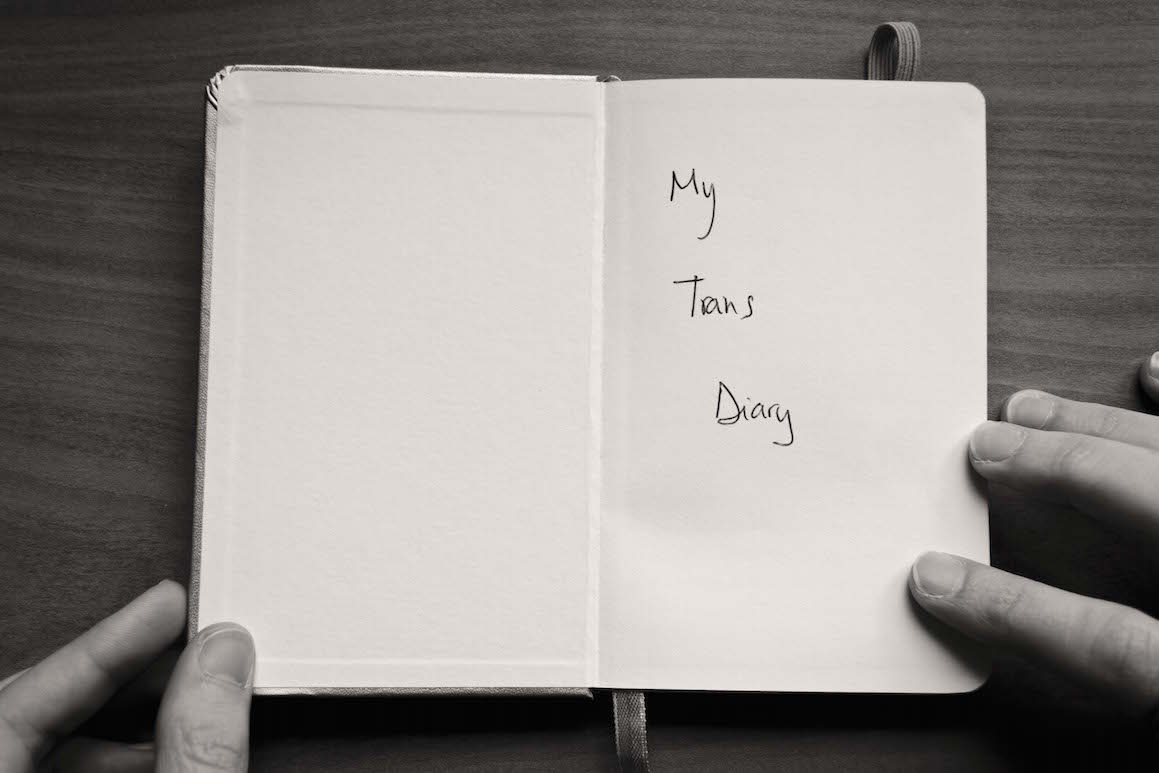 My
Trans
Diary